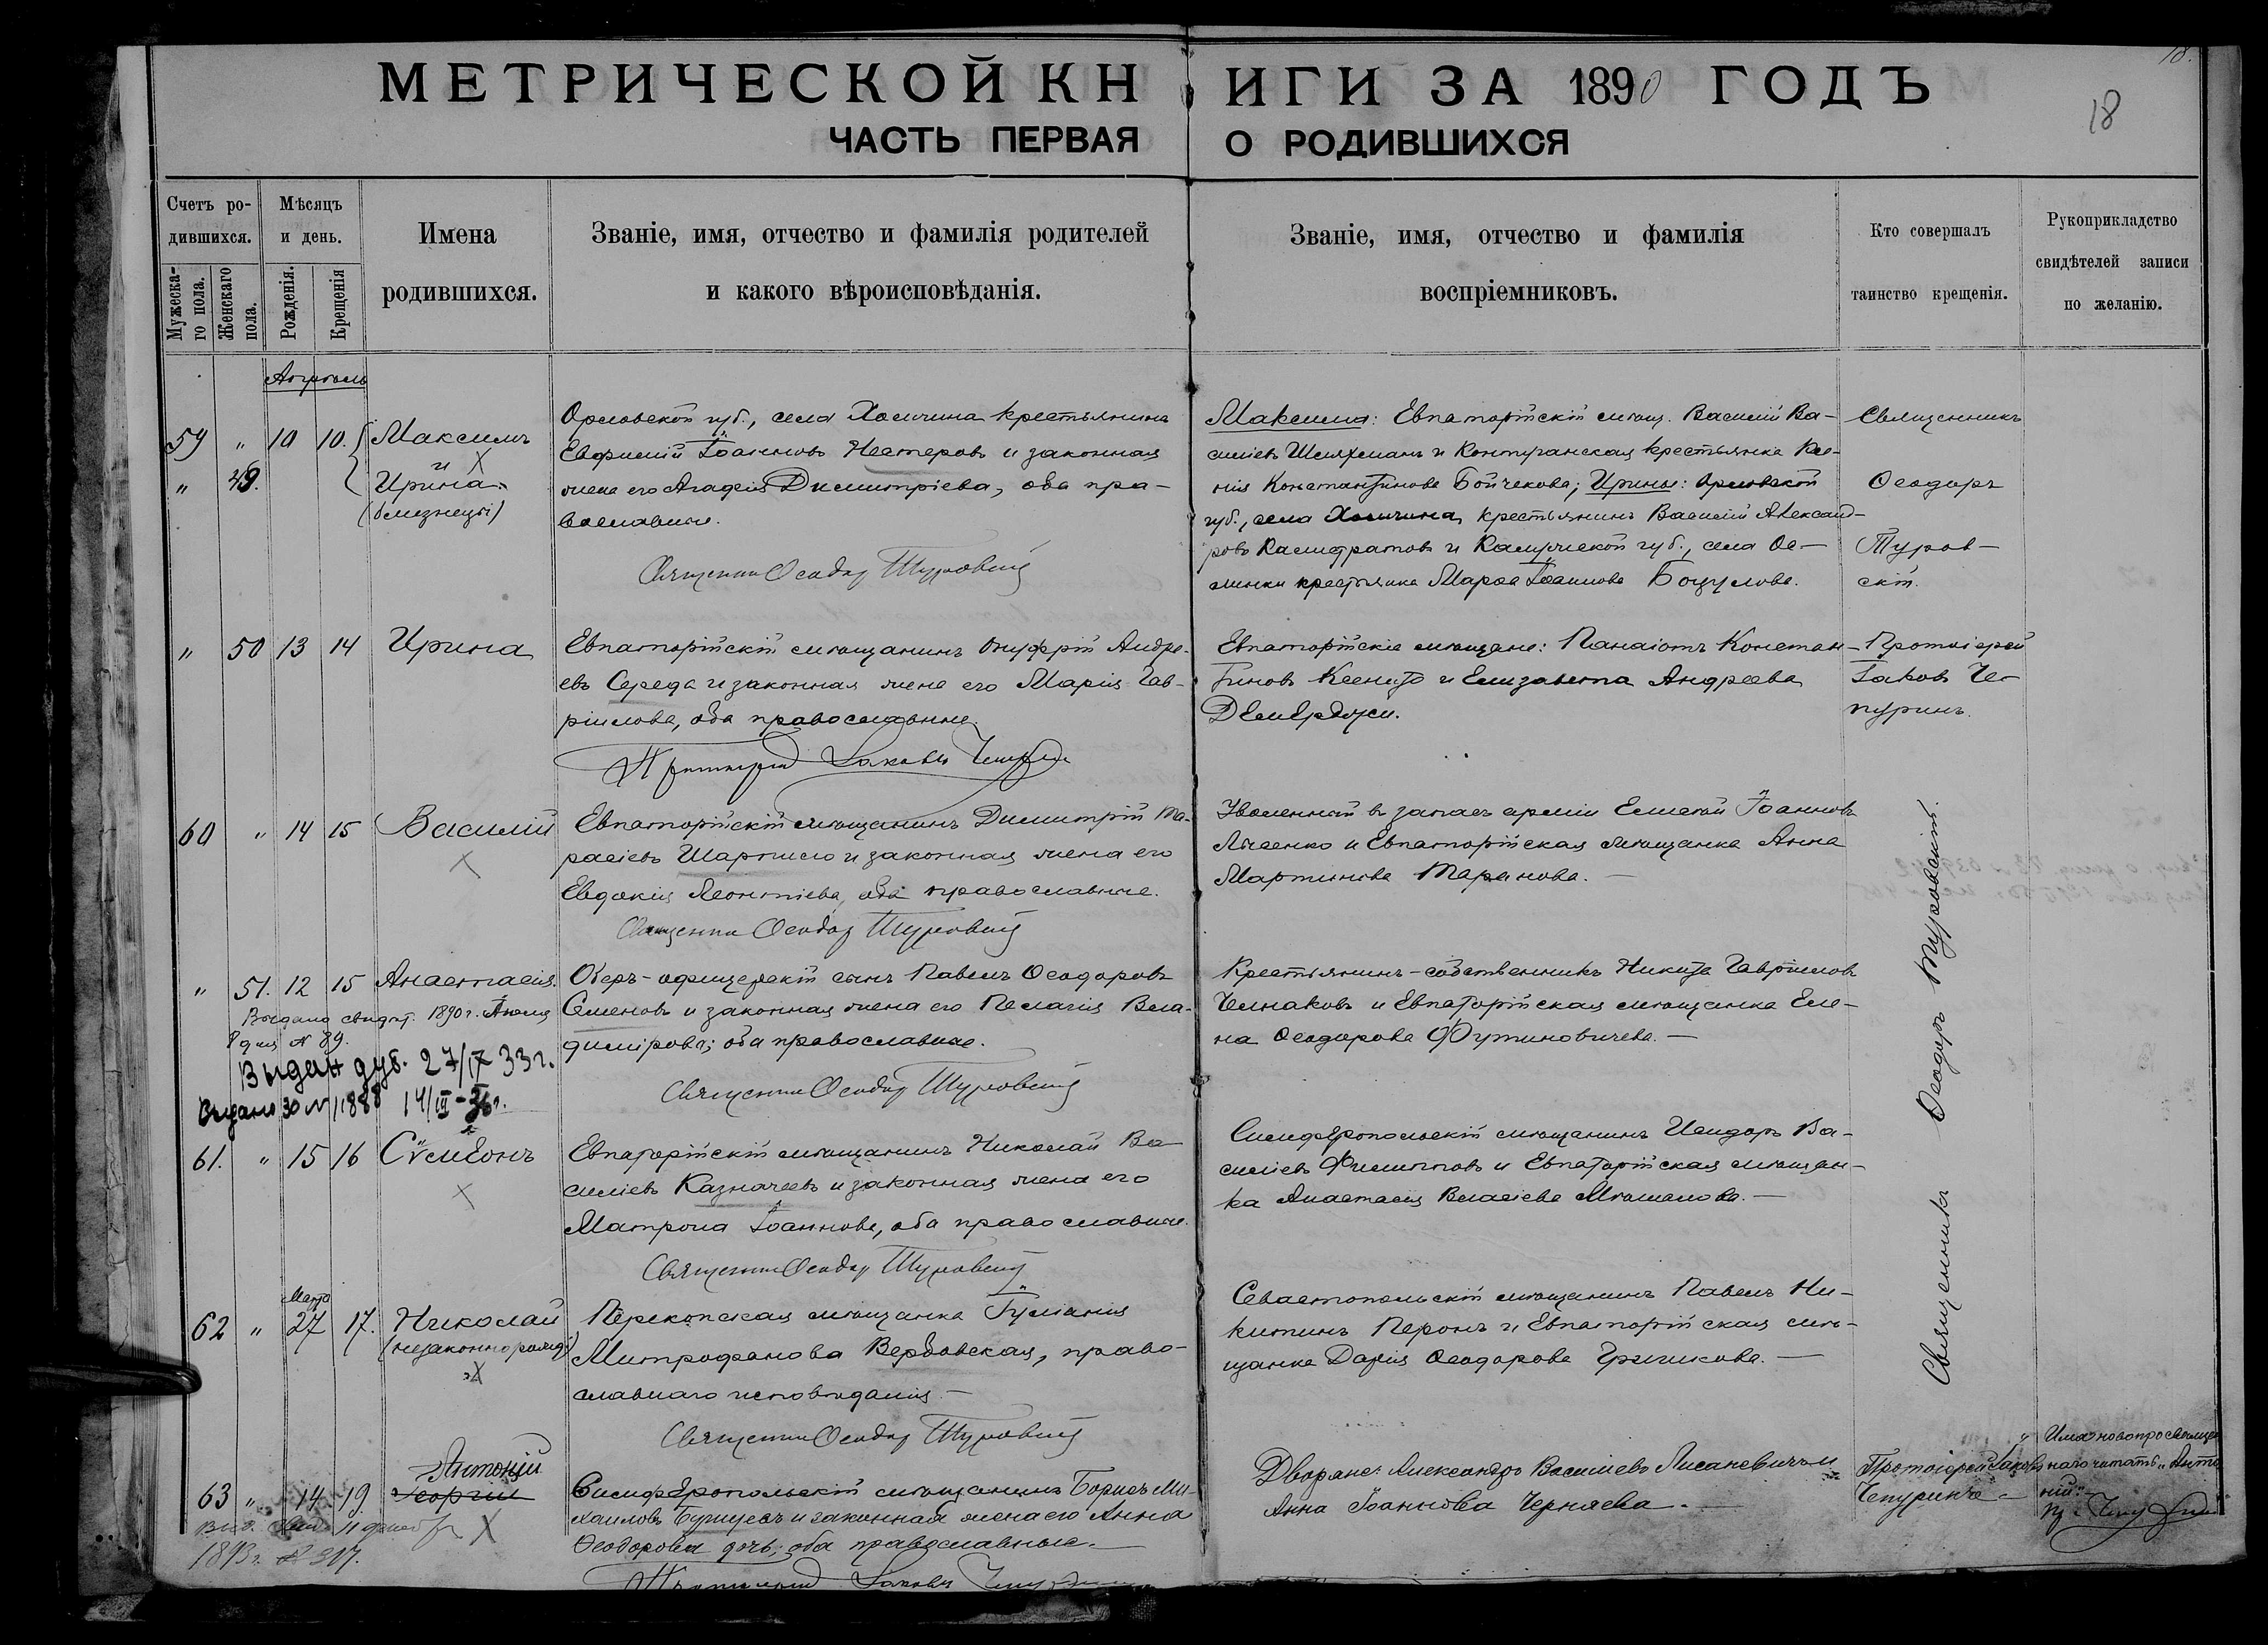 МЕТРИЧЕСКОЙ КНИГИ ЗА 1890 ГОДЪ
18
ЧАСТЬ ПЕРВАЯ О РОДИВШИХСЯ
Счетъ родившихся.
Мужескаго пола.
Женскаго пола.
Мѣсяцъ и день.
Рожденія.
Крещенія
Имена родившихся.
Званіе, имя, отчество и фамилія родителей
и какого вѣроисповѣданія.
Званіе, имя, отчество и фамилія
воспріемниковъ.
Кто совершалъ
таинство крещенія.
Рукоприкладство
свидѣтелей записи
по желанію.
Апрѣль
59 " 10 10. Максимъ
и
" 49. Ирина
(близнецы)
Орловской губ., села крестьянинъ
Евфимій Іоанновъ Нестеровъ и законная
жена его Агафія Димитріева, оба пра-
вославные.
Священникъ Ѳеодоръ Туровскій
Максима: Евпаторійскій мѣщ. Василій Ва-
силіевъ и крестьянка Ксе-
нія Константинова Бойчекова; Ирины: Орловской
губ., села крестьянинъ Василій Александ-
ровъ и Калужской губ., села
крестьянка Марѳа Іоаннова
Священникъ
Ѳеодоръ
Туров-
скій.
" 50 13 14 Ирина
Евпаторійскій мѣщанинъ Онуфрій Андре-
евъ Середа и законная жена его Марія Гав-
ріилова, оба православные.
Протоіерей Іаковъ Чепуринъ
Евпаторійскіе мѣщане: Панаіотъ Констан-
тиновъ и Елизавета Андреева
Протоіерей
Іаковъ Че-
пуринъ.
60 " 14 15 Василій
Евпаторійскій мѣщанинъ Димитрій Та-
расіевъ и законная жена его
Евдокія Леонтіева, оба православные.
Священникъ Ѳеодоръ Туровскій
Уволенный въ запасъ арміи Іоанновъ
и Евпаторійская мѣщанка Анна
Мартинова Таранова.
" 51. 12 15 Анастасія.
Выдано свидѣт. 1890 г. Іюля
8 дня № 89.
Выдан дуб. 27/IX 33 г.
Выдано 14/III-36г.
Оберъ-офицерскій сынъ Павелъ Ѳеодоровъ
Семеновъ и законная жена его Пелагія Вла-
димірова; оба православные.
Священникъ Ѳеодоръ Туровскій
Крестьянинъ-собственникъ Никита Гавріиловъ
Челнаковъ и Евпаторійская мѣщанка Еле-
на Ѳеодорова Футиновичева.
61. " 15 16 Сѵмеонъ
Евпаторійскій мѣщанинъ Николай Ва-
силіевъ Казначеевъ и законная жена его
Матрона Іоаннова, оба православные.
Священникъ Ѳеодоръ Туровскій
Симферопольскій мѣщанинъ Исидоръ Ва-
силіевъ Филипповъ и Евпаторійская мѣщан-
ка Анастасія Власіева
Марта
62 " 27 17. Николай
(незаконнорожд.)
Перекопская мѣщанка Іуліанія
Митрофанова Вербовская, право-
славнаго исповѣданія.
Священникъ Ѳеодоръ Туровскій
Севастопольскій мѣщанинъ Павелъ Ни-
китинъ Перонъ и Евпаторійская мѣ-
щанка Дарія Ѳеодорова
Священникъ Ѳеодоръ Туровскій.
Антоній
63 " 14 19 Георгій
Симферопольскій мѣщанинъ Борисъ Ми-
хаиловъ и законная жена его Анна
Ѳеодорова дочь; оба православные.
Протоіерей Іаковъ Чепуринъ
Дворяне: Александръ Василіевъ Лисаневичъ и
Анна Іоаннова Черняева.
Протоіерей Іаковъ
Чепуринъ
Имя новопросвѣщен-
наго читать "Анто-
ній".